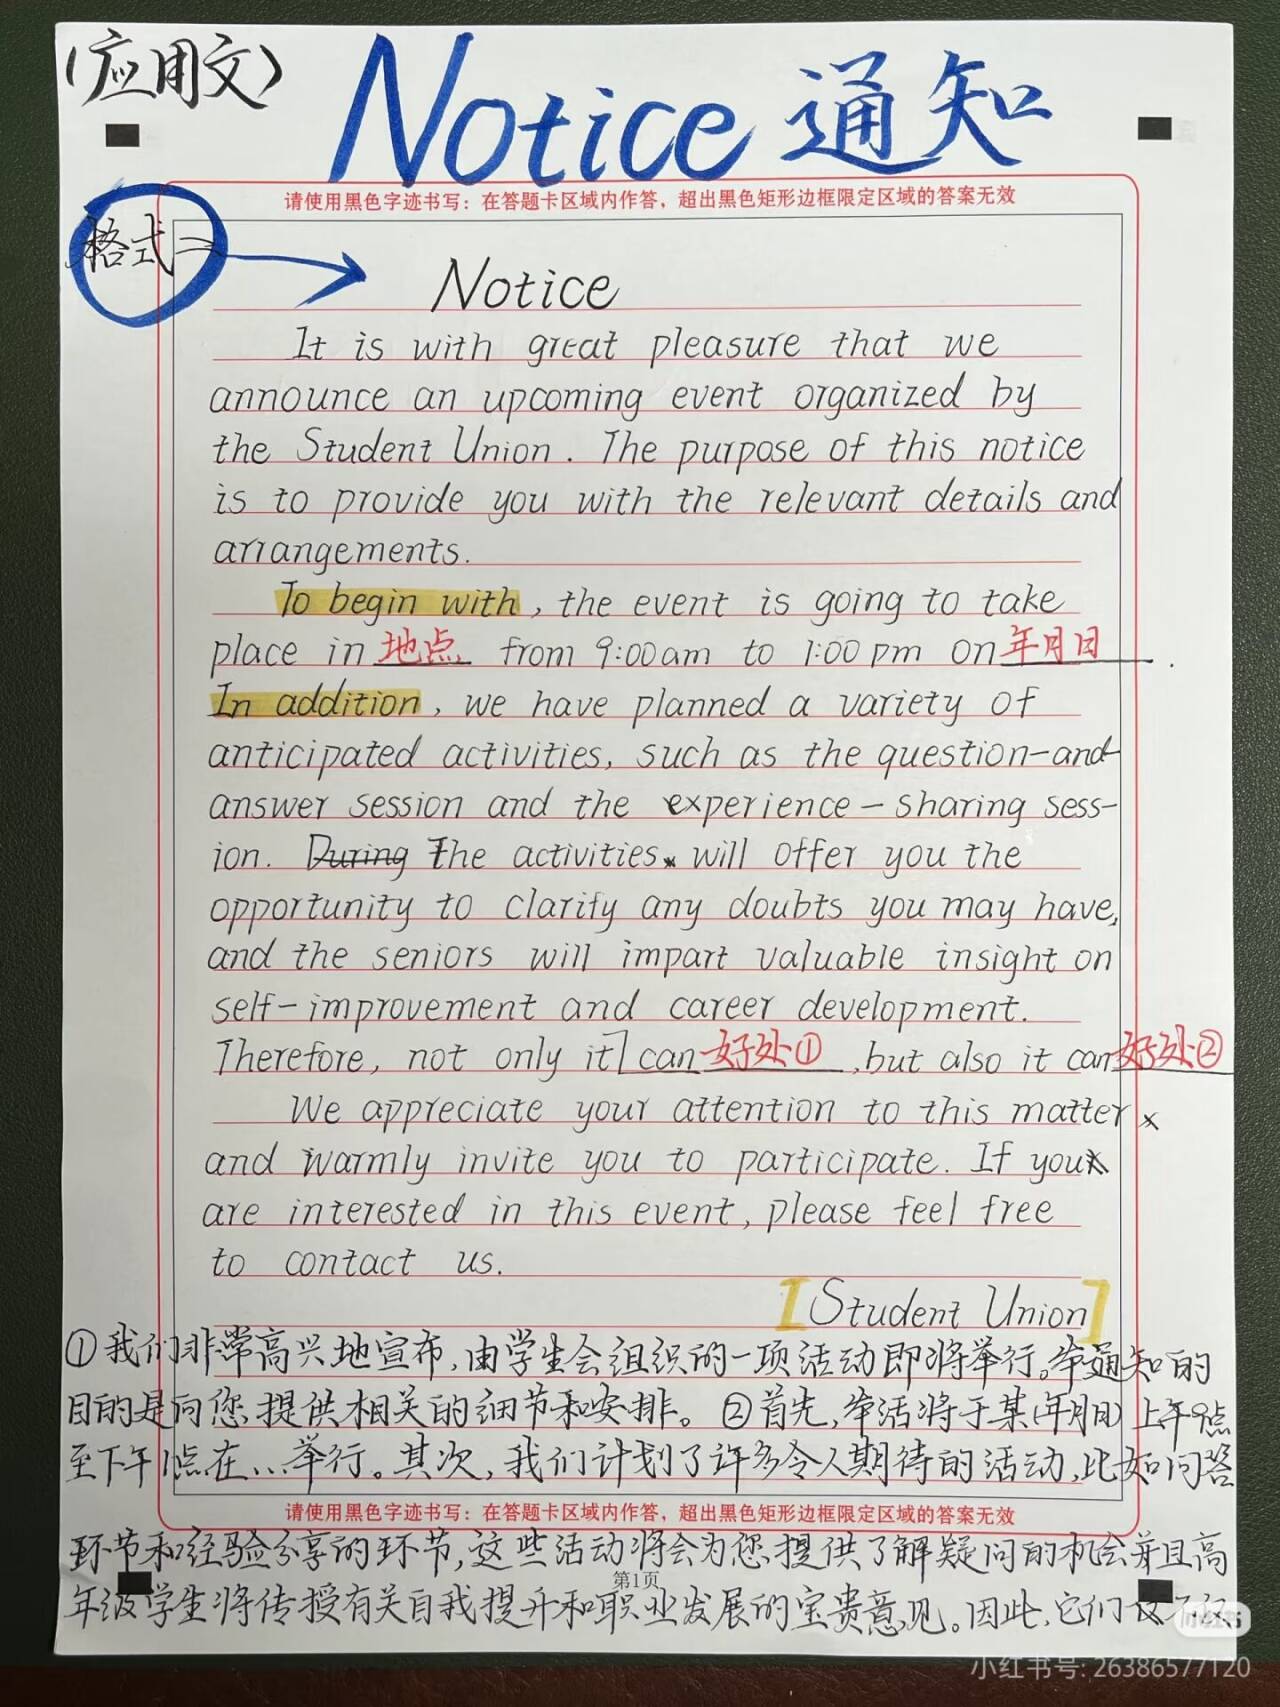 (应用文)
Notice 通知
请使用黑色字迹书写：在答题卡区域内作答，超出黑色矩形边框限定区域的答案无效
格式
Notice
It is with great pleasure that we
announce an upcoming event organized by
the Student Union. The purpose of this notice
is to provide you with the relevant details and
arrangements.
To begin with, the event is going to take
place in 地点 from 9:00am to 1:00 pm on 年月日.
In addition, we have planned a variety of
anticipated activities, such as the question-and-
answer session and the experience-sharing sess-
ion. During The activities will offer you the
opportunity to clarify any doubts you may have,
and the seniors will impart valuable insight on
self-improvement and career development.
Therefore, not only it can 好处①, but also it can 好处②
We appreciate your attention to this matter
and warmly invite you to participate. If you
are interested in this event, please feel free
to contact us.
[Student Union]
①我们非常高兴地宣布,由学生会组织的一项活动即将举行。本通知的
目的是向您提供相关的细节和安排。②首先,本活将于某(年月日)上午9点
至下午1点在...举行。其次,我们计划了许多令人期待的活动,比如问答
请使用黑色字迹书写：在答题卡区域内作答，超出黑色矩形边框限定区域的答案无效
环节和经验分享的环节,这些活动将会为您提供了解疑问的机会并且高
第1页
年级学生将传授有关自我提升和职业发展的宝贵意见。因此,它们仅不仅
小红书
小红书号: 26386577120